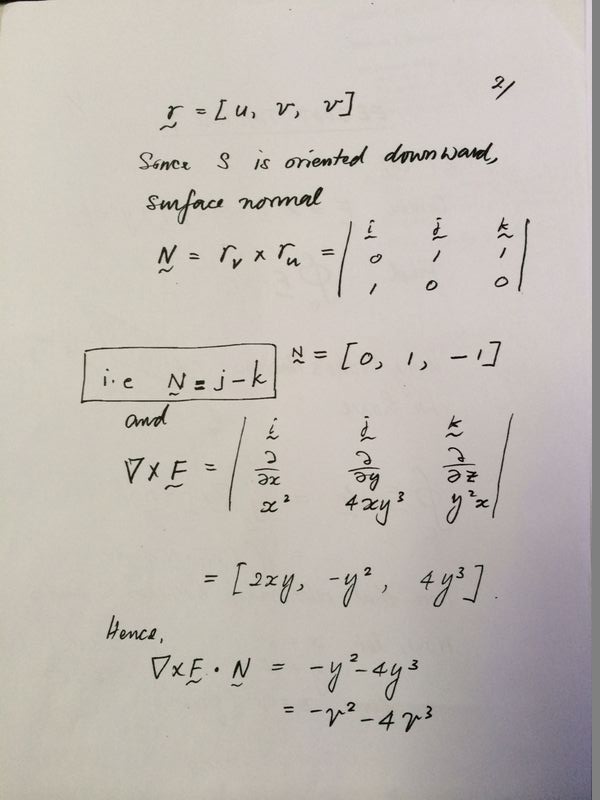 2/
r = [u, v, v]
Sence S is oriented downward,
surface normal
N = r_v × r_u = | i j k |
| 0 1 1 |
| 1 0 0 |
i.e N = j - k N = [0, 1, -1]
and
∇ × F = | i j k |
| ∂/∂x ∂/∂y ∂/∂z |
| x² 4xy³ y²x |
= [2xy, -y², 4y³].
Hence,
∇×F · N = -y² - 4y³
= -v² - 4v³